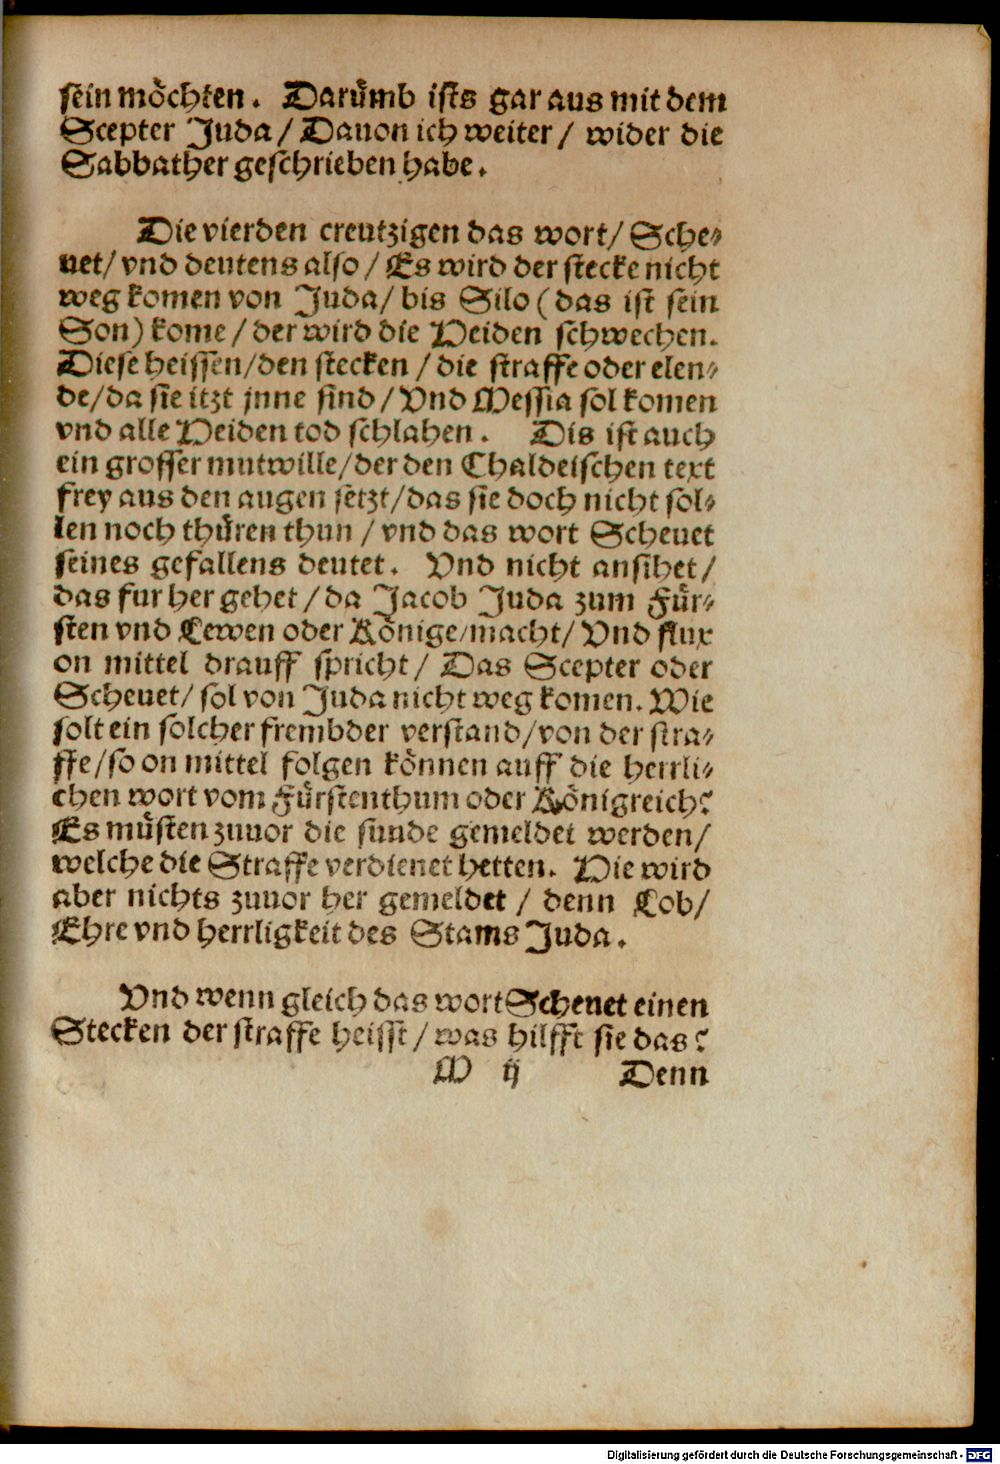 sein möchten. Darümb ists gar aus mit dem
Scepter Juda/ Dauon ich weiter/ wider die
Sabbather geschrieben habe.
Die vierden creutzigen das wort/ Sche-
uet/ vnd deutens also/ Es wird der stecke nicht
weg komen von Juda/ bis Silo (das ist sein
Son) kome/ der wird die Heiden schwechen.
Diese heissen/ den stecken/ die straffe oder elen-
de/ da sie itzt jnne sind/ Vnd Messia sol komen
vnd alle Heiden tod schlahen. Dis ist auch
ein grosser mutwille/ der den Chaldeischen text
frey aus den augen setzt/ das sie doch nicht sol-
len noch thüren thun/ vnd das wort Scheuet
seines gefallens deutet. Vnd nicht ansihet/
das fur her gehet/ da Jacob Juda zum Für-
sten vnd Lewen oder Könige/ macht/ Vnd flux
on mittel drauff spricht/ Das Scepter oder
Scheuet/ sol von Juda nicht weg komen. Wie
solt ein solcher frembder verstand/ von der stra-
ffe/ so on mittel folgen können auff die herrli-
chen wort vom Fürstenthum oder Königreich?
Es müsten zuuor die sunde gemeldet werden/
welche die Straffe verdienet hetten. Hie wird
aber nichts zuuor her gemeldet/ denn Lob/
Ehre vnd herrligkeit des Stams Juda.
Vnd wenn gleich das wort Scheuet einen
Stecken der straffe heisst/ was hilfft sie das?
M ij Denn
Digitalisierung gefördert durch die Deutsche Forschungsgemeinschaft - DFG